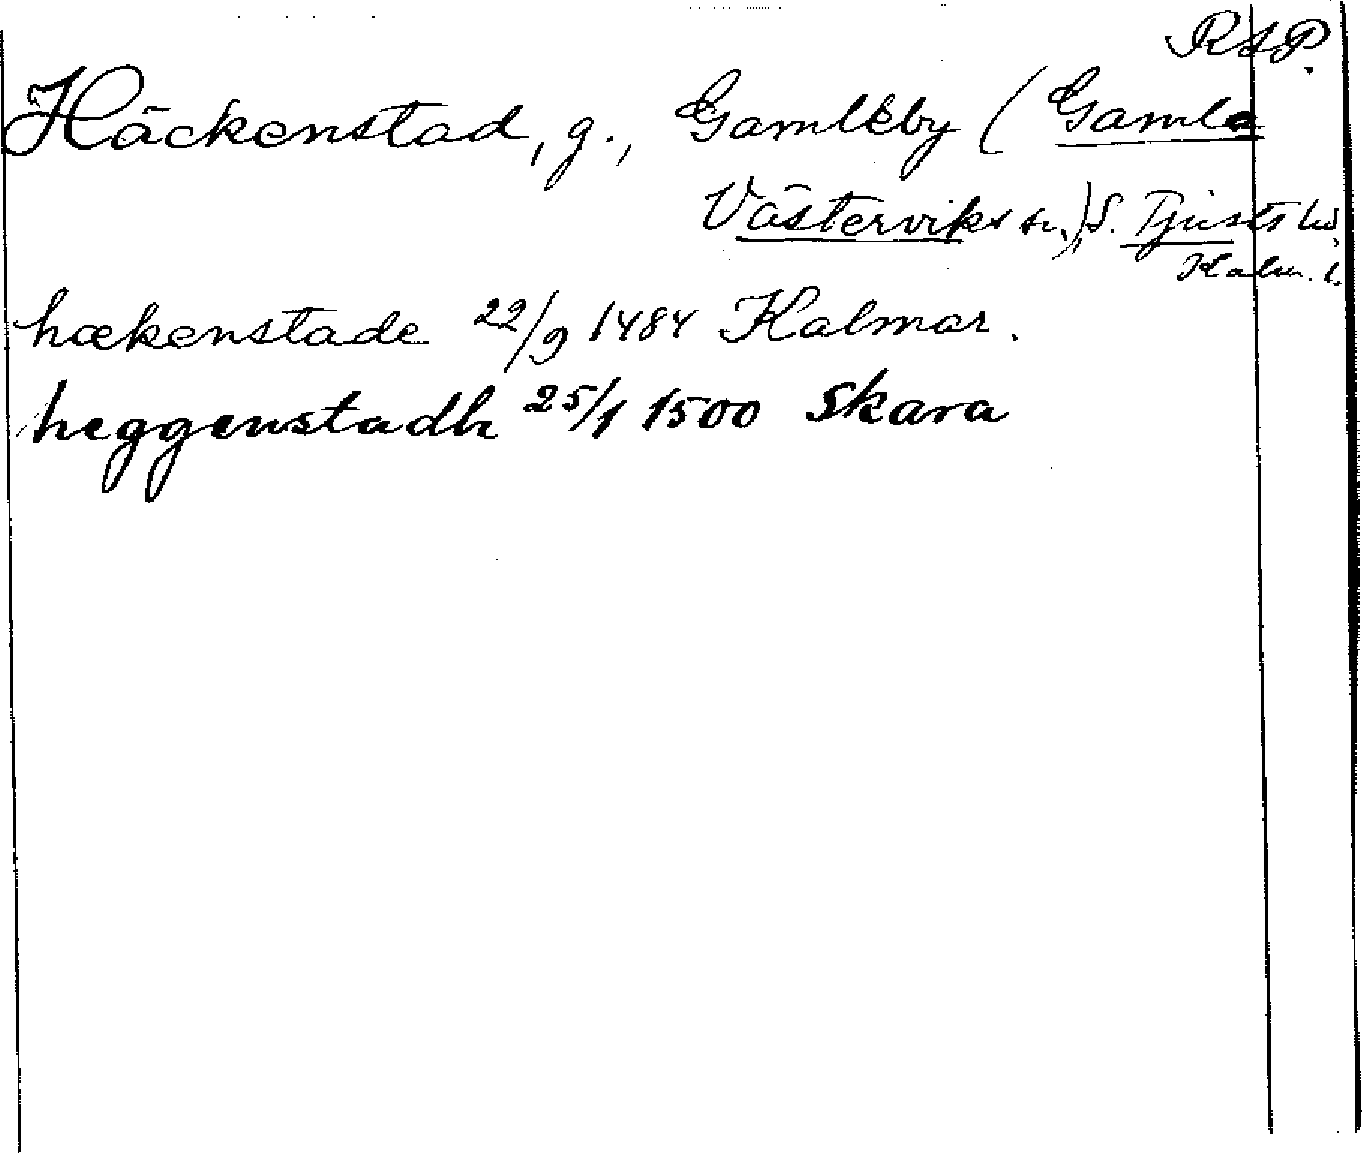 RAP.
Häckenstad, g., Gamleby (Gamla
Västerviks sn.), S. Tjusts hd.
Kalm. l.
hækenstade 22/9 1484 Kalmar.
heggenstadh 25/1 1500 Skara